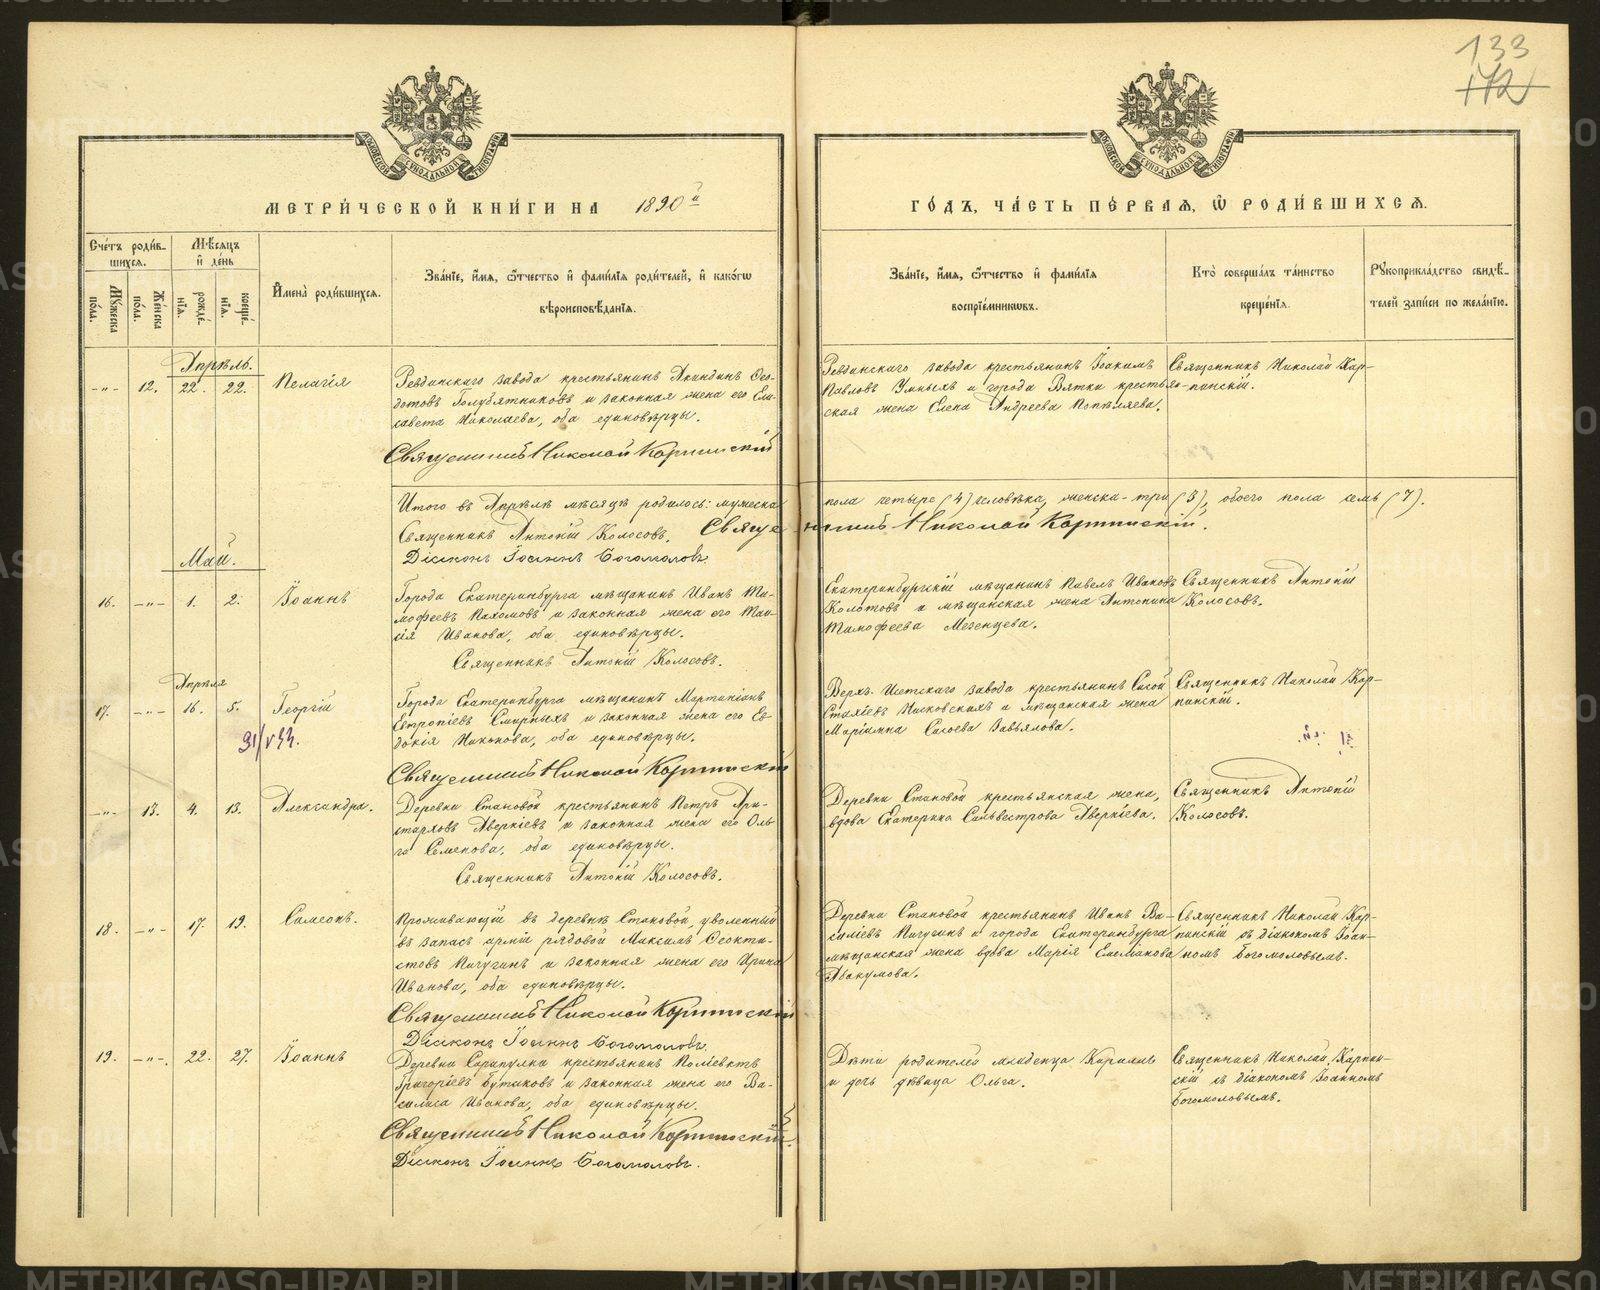 133
172
МЕТРИ́ЧЕСКОЙ КНИ́ГИ НА 1890й
ГО́ДЪ, ЧА́СТЬ ПЕ́РВАЯ, Ѿ РОДИ́ВШИХСЯ.
Сче́тъ роди́в-
шихся.
Мѣ́сяцъ
и҆ де́нь
Мꙋ́жеска
по́ла.
Же́нска
по́ла.
рожде́-
нїя.
креще́-
нїя.
И҆мена̀ роди́вшихся.
Зва́нїе, и҆́мя, ѻ҆́тчество и҆ фами́лїя роди́телей, и҆ како́гѡ
вѣроисповѣ́данїя.
Зва́нїе, и҆́мя, ѻ҆́тчество и҆ фами́лїя
воспрїе́мниковъ.
Кто̀ соверша́лъ та́инство
креще́нїя.
Рꙋкоприкла́дство свидѣ́-
телей за́писи по жела́нїю.
Апрѣль.
-"- 12. 22. 22. Пелагія
Ревдинскаго завода крестьянинъ Акиндинъ Ѳео-
дотовъ Голубятниковъ и законная жена его Ели-
савета Николаева, оба единовѣрцы.
Священникъ Николай Карпинскій
Ревдинскаго завода крестьянинъ Іоакимъ
Павловъ Умныхъ и города Вятки крестьян-
ская жена Елена Андреева Попѣляева.
Священникъ Николай Кар-
пинскій.
Итого въ Апрѣлѣ мѣсяцѣ родилось: мужеска пола четыре (4) человѣка, женска - три (3), обоего пола семь (7).
Священникъ Антоній Колосовъ. Священникъ Николай Карпинскій.
Діаконъ Іоаннъ Богомоловъ
Май.
16. -"- 1. 2. Іоаннъ
Города Екатеринбурга мѣщанинъ Иванъ Ти-
мофеевъ Пахомовъ и законная жена его Таи-
сія Иванова, оба единовѣрцы.
Священникъ Антоній Колосовъ.
Екатеринбургскій мѣщанинъ Павелъ Ивановъ
Колотовъ и мѣщанская жена Антонина
Тимофеева Мезенцева.
Священникъ Антоній
Колосовъ.
Апрѣля
17. -"- 16. 5. Георгій
31/V 33.
Города Екатеринбурга мѣщанинъ Мартиніанъ
Евтропіевъ Смирныхъ и законная жена его Ев-
докія Никонова, оба единовѣрцы.
Священникъ Николай Карпинскій
Верхъ-Исетскаго завода крестьянинъ Сысой
Стахіевъ Чисковскихъ и мѣщанская жена
Маріамна Сысоева Завьялова.
Священникъ Николай Кар-
пинскій.
-"- 13. 4. 13. Александра.
Деревни Становой крестьянинъ Петръ Ари-
старховъ Аверкіевъ и законная жена его Оль-
га Семенова, оба единовѣрцы.
Священникъ Антоній Колосовъ.
Деревни Становой крестьянская жена,
вдова Екатерина Сильвестрова Аверкіева.
Священникъ Антоній
Колосовъ.
18. -"- 17. 19. Симеонъ.
Проживающій въ деревнѣ Становой, уволенный
въ запасъ арміи рядовой Максимъ Ѳеокти-
стовъ Пичугинъ и законная жена его Ирина
Иванова, оба единовѣрцы.
Священникъ Николай Карпинскій
Діаконъ Іоаннъ Богомоловъ
Деревни Становой крестьянинъ Иванъ Ва-
силіевъ Пичугинъ и города Екатеринбурга
мѣщанская жена вдова Марія Емеліанова
Абакумова.
Священникъ Николай Кар-
пинскій съ діакономъ Іоан-
номъ Богомоловымъ.
19. -"- 22. 27. Іоаннъ
Деревни Сарапулки крестьянинъ Поліевктъ
Григоріевъ Бутаковъ и законная жена его Ва-
силиса Иванова, оба единовѣрцы.
Священникъ Николай Карпинскій.
Діаконъ Іоаннъ Богомоловъ.
Дѣти родителей младенца Кириллъ
и дочь дѣвица Ольга.
Священникъ Николай Карпин-
скій съ діакономъ Іоанномъ
Богомоловымъ.
METRIKI.GASO-URAL.RU